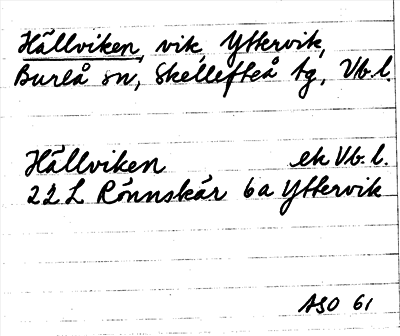 Hällviken, vik, Yttervik,
Bureå sn, Skellefteå tg, Vb.l.
Hällviken ek Vb.l.
22 L Rönnskär 6a Yttervik
ASO 61